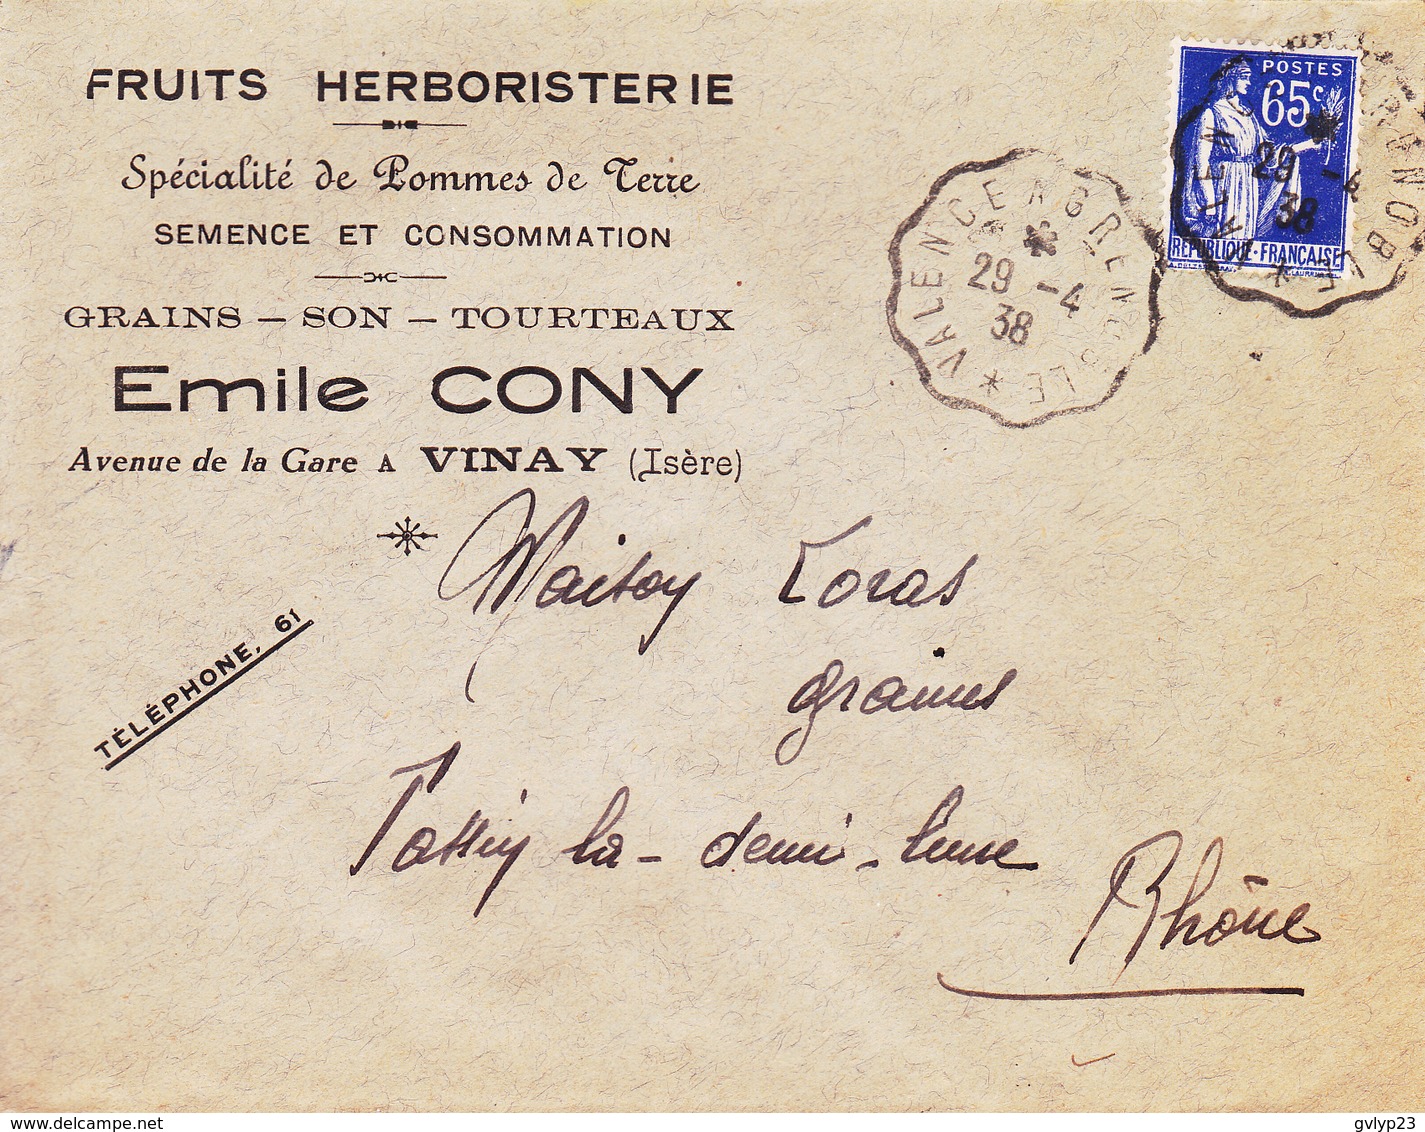 FRUITS HERBORISTERIE
Spécialité de Pommes de Terre
SEMENCE ET CONSOMMATION
GRAINS – SON – TOURTEAUX
Emile CONY
Avenue de la Gare A VINAY (Isère)
TÉLÉPHONE, 61
POSTES
65c
RÉPUBLIQUE·FRANÇAISE
VALENCE A GRENOBLE
29 -4
38
VALENCE A GRENOBLE
29 -4
38
Maison Loras
graines
Tassin la-demi-lune
Rhône
www.delcampe.net
gvlyp23